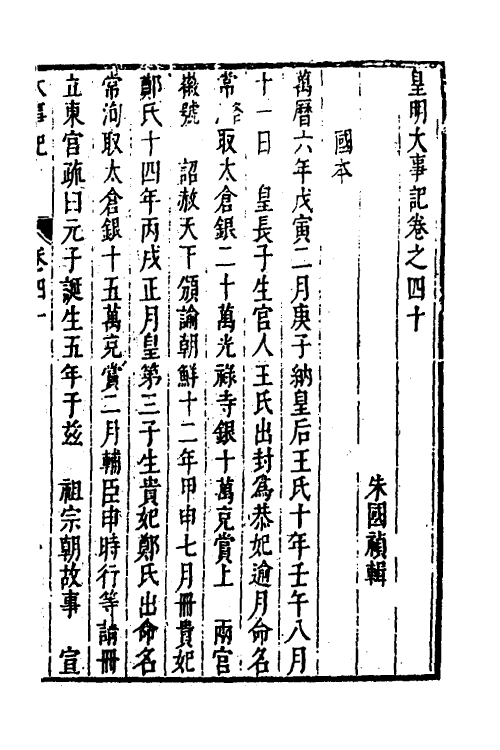 皇明大事記卷之四十
朱國禎輯
國本
萬曆六年戊寅二月庚子納皇后王氏十年壬午八月
十一日　皇長子生官人王氏出封爲恭妃逾月命名
常洛取太倉銀二十萬光祿寺銀十萬充賞上　兩宮
徽號　詔赦天下頒諭朝鮮十二年甲申七月冊貴妃
鄭氏十四年丙戌正月皇第三子生貴妃鄭氏出命名
常洵取太倉銀十五萬充賞二月輔臣申時行等請冊
立東宮疏曰元子誕生五年于兹　祖宗朝故事　宣
大事記　卷四十